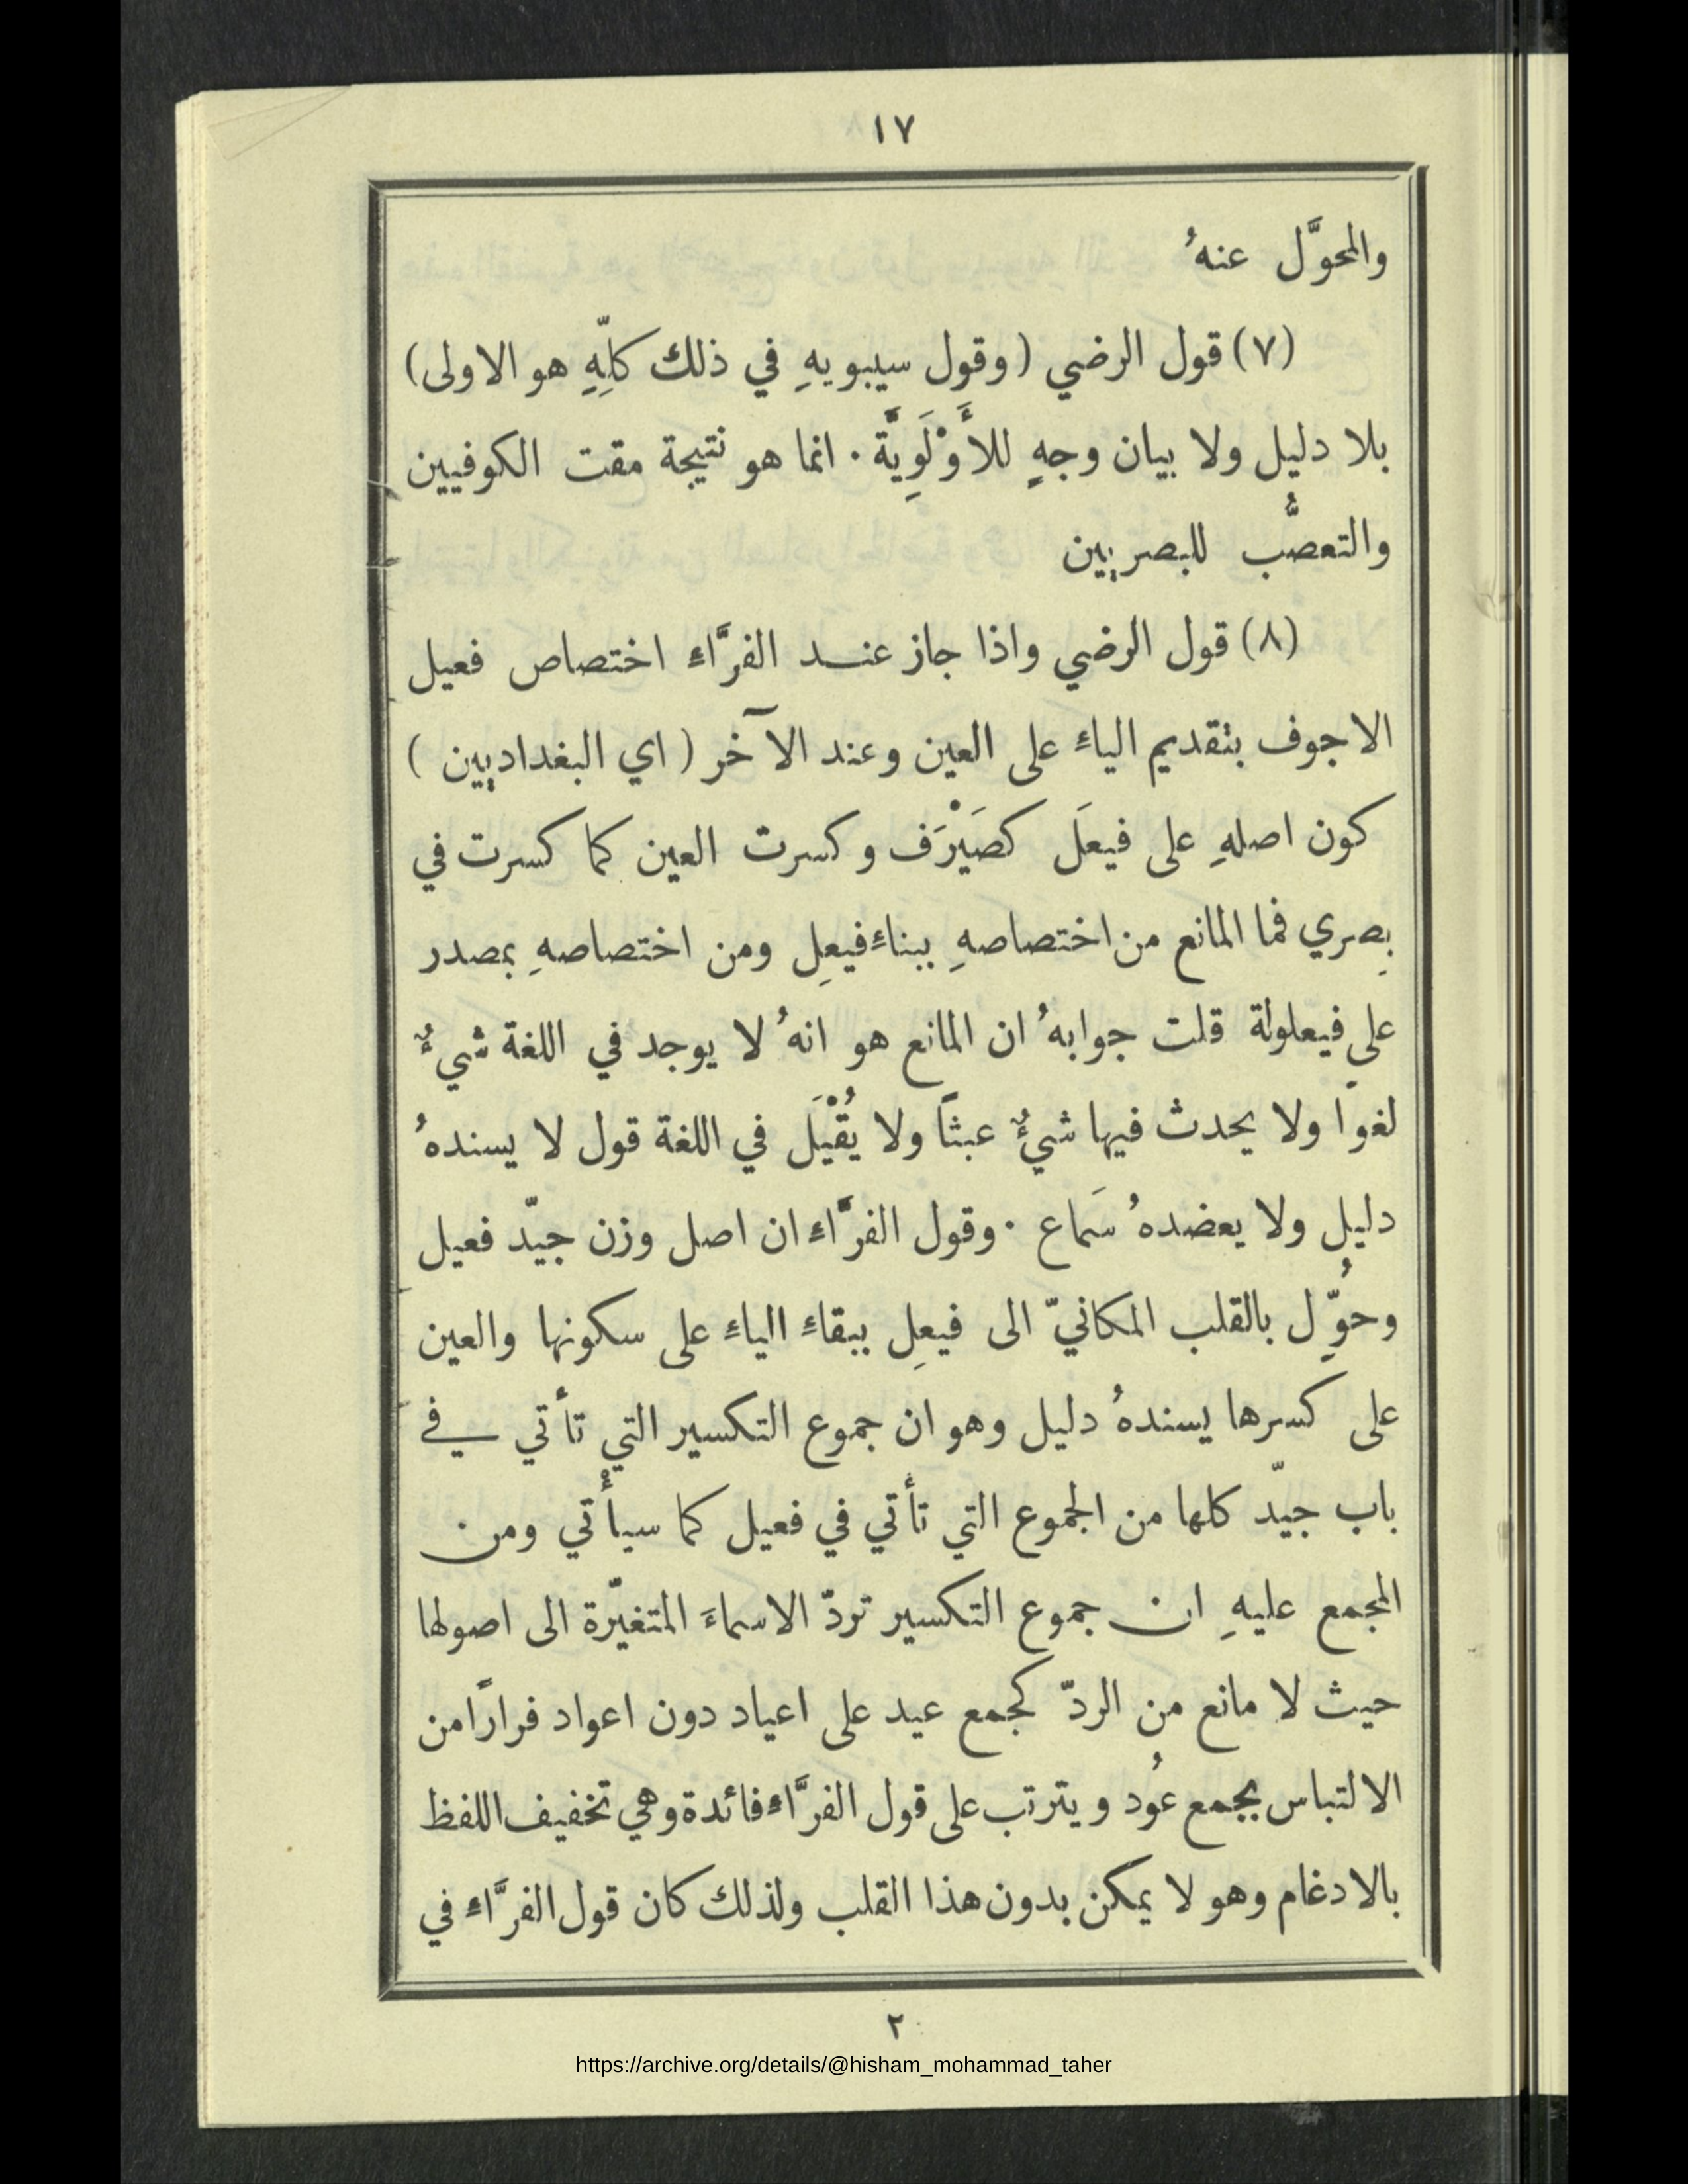 ١٧
والمحوَّل عنهُ
(٧) قول الرضي (وقول سيبويهِ في ذلك كلِّهِ هو الاولى)
بلا دليل ولا بيان وجهٍ للأَوْلَوِيَّة . انما هو نتيجة مقت الكوفيين
والتعصُّب للبصريين
(٨) قول الرضي واذا جاز عنـد الفرَّاء اختصاص فعيل
الاجوف بتقديم الياءِ على العين وعند الآخر (اي البغداديين)
كون اصلهِ على فيعَل كصَيْرَف وكسرت العين كما كسرت في
بِصري فما المانع من اختصاصهِ ببناءِ فيعِل ومن اختصاصهِ بمصدر
على فيعلولة قلت جوابهُ ان المانع هو انهُ لا يوجد في اللغة شيءٌ
لغوًا ولا يحدث فيها شيءٌ عبثًا ولا يُقْبَل في اللغة قول لا يسندهُ
دليل ولا يعضدهُ سَماع . وقول الفرَّاء ان اصل وزن جيّد فعيل
وحُوِّل بالقلب المكانيّ الى فيعِل ببقاءِ الياءِ على سكونها والعين
على كسرها يسندهُ دليل وهو ان جموع التكسير التي تأتي في
باب جيّد كلها من الجموع التي تأتي في فعيل كما سيأْتي ومن
المجمع عليهِ ان جموع التكسير تردّ الاسماءَ المتغيّرة الى اصولها
حيث لا مانع من الردّ كجمع عيد على اعياد دون اعواد فرارًا من
الالتباس بجمع عُود ويترتب على قول الفرَّاء فائدة وهي تخفيف اللفظ
بالادغام وهو لا يمكن بدون هذا القلب ولذلك كان قول الفرَّاء في
٢
https://archive.org/details/@hisham_mohammad_taher